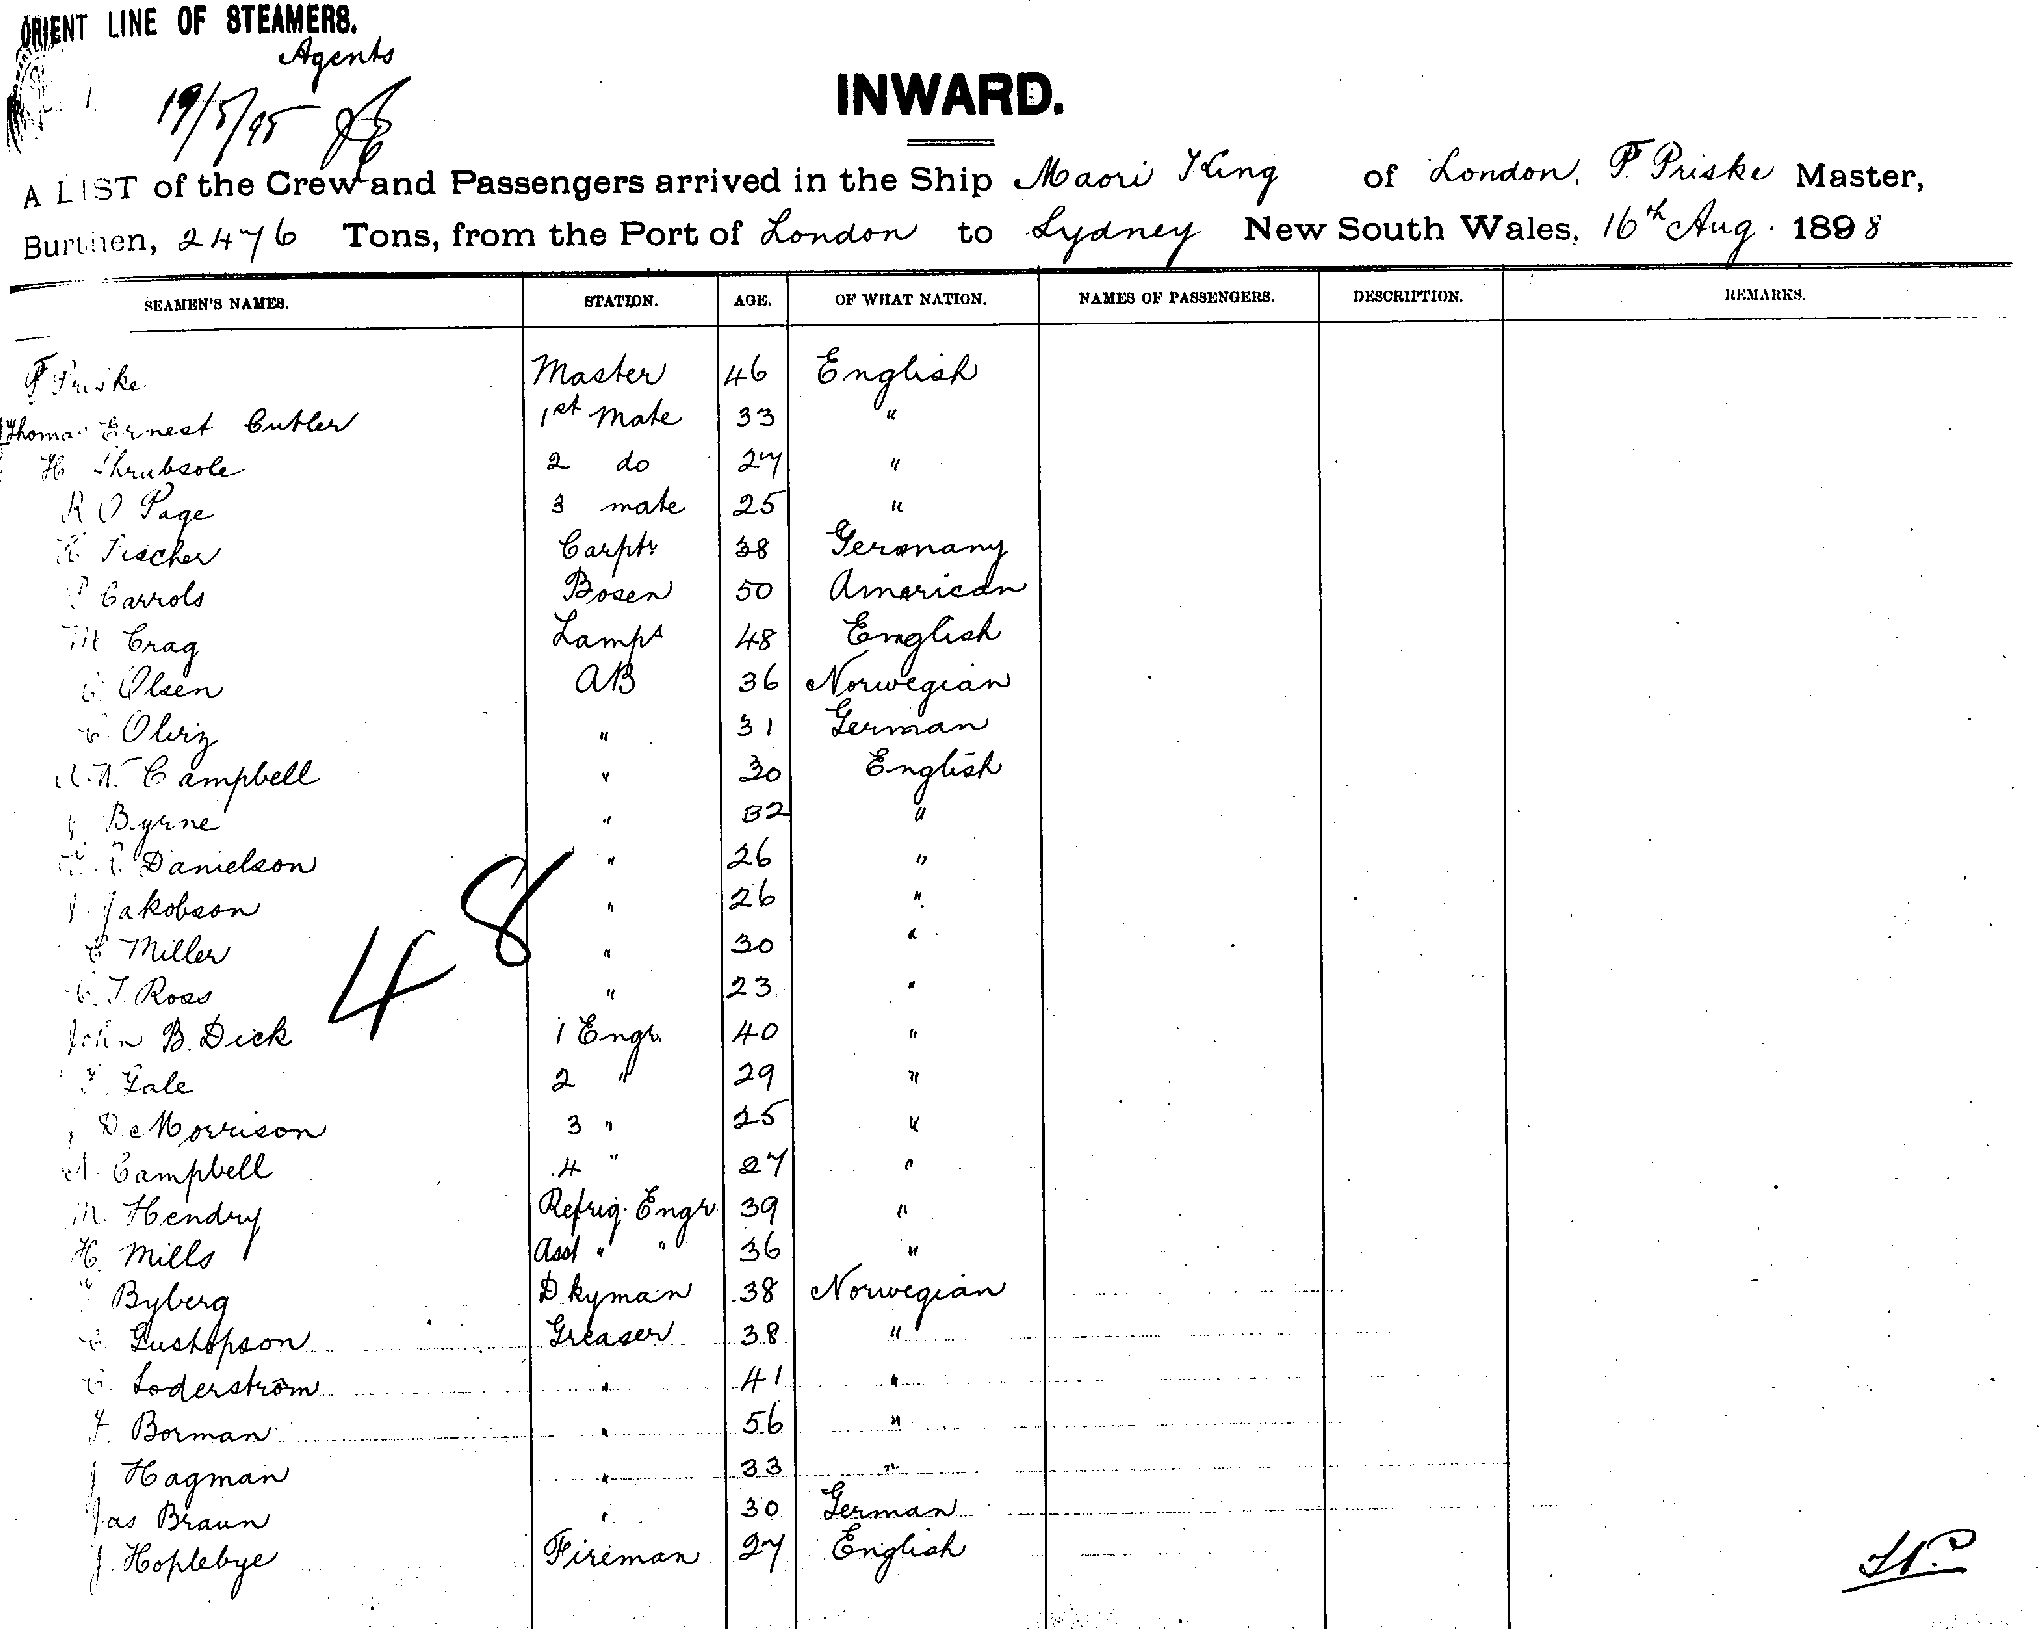 ORIENT LINE OF STEAMERS.
Agents
INWARD.
A LIST of the Crew and Passengers arrived in the Ship Maori King of London, F. Priske Master,
Burthen, 2476 Tons, from the Port of London to Sydney New South Wales, 16th Aug. 1898
SEAMEN'S NAMES. STATION. AGE. OF WHAT NATION. NAMES OF PASSENGERS. DESCRIPTION. REMARKS.
F Priske Master 46 English
Thomas Ernest Cutler 1st Mate 33 "
H Shrubsole 2 do 27 "
R O Page 3 mate 25 "
Fischer Carptr 38 Germany
P Carrols Bosen 50 American
M Crag Lamps 48 English
Olsen AB 36 Norwegian
Olerz " 31 German
Campbell " 30 English
Byrne " 32 "
Danielson " 26 "
J. Jakobson " 26 "
C Miller " 30 "
C. T. Ross " 23 "
48
John B. Dick 1 Engr. 40 "
Gale 2 " 29 "
Mc Morrison 3 " 25 "
A. Campbell 4 " 27 "
M. Hendry Refrig. Engr 39 "
H. Mills Asst " " 36 "
Byberg Dkyman 38 Norwegian
Gustopson Greaser 38 "
C. Soderstrom " 41 "
F. Borman " 56 "
J Hagman " 33 "
Jas Braun " 30 German
J. Hoplebye Fireman 27 English